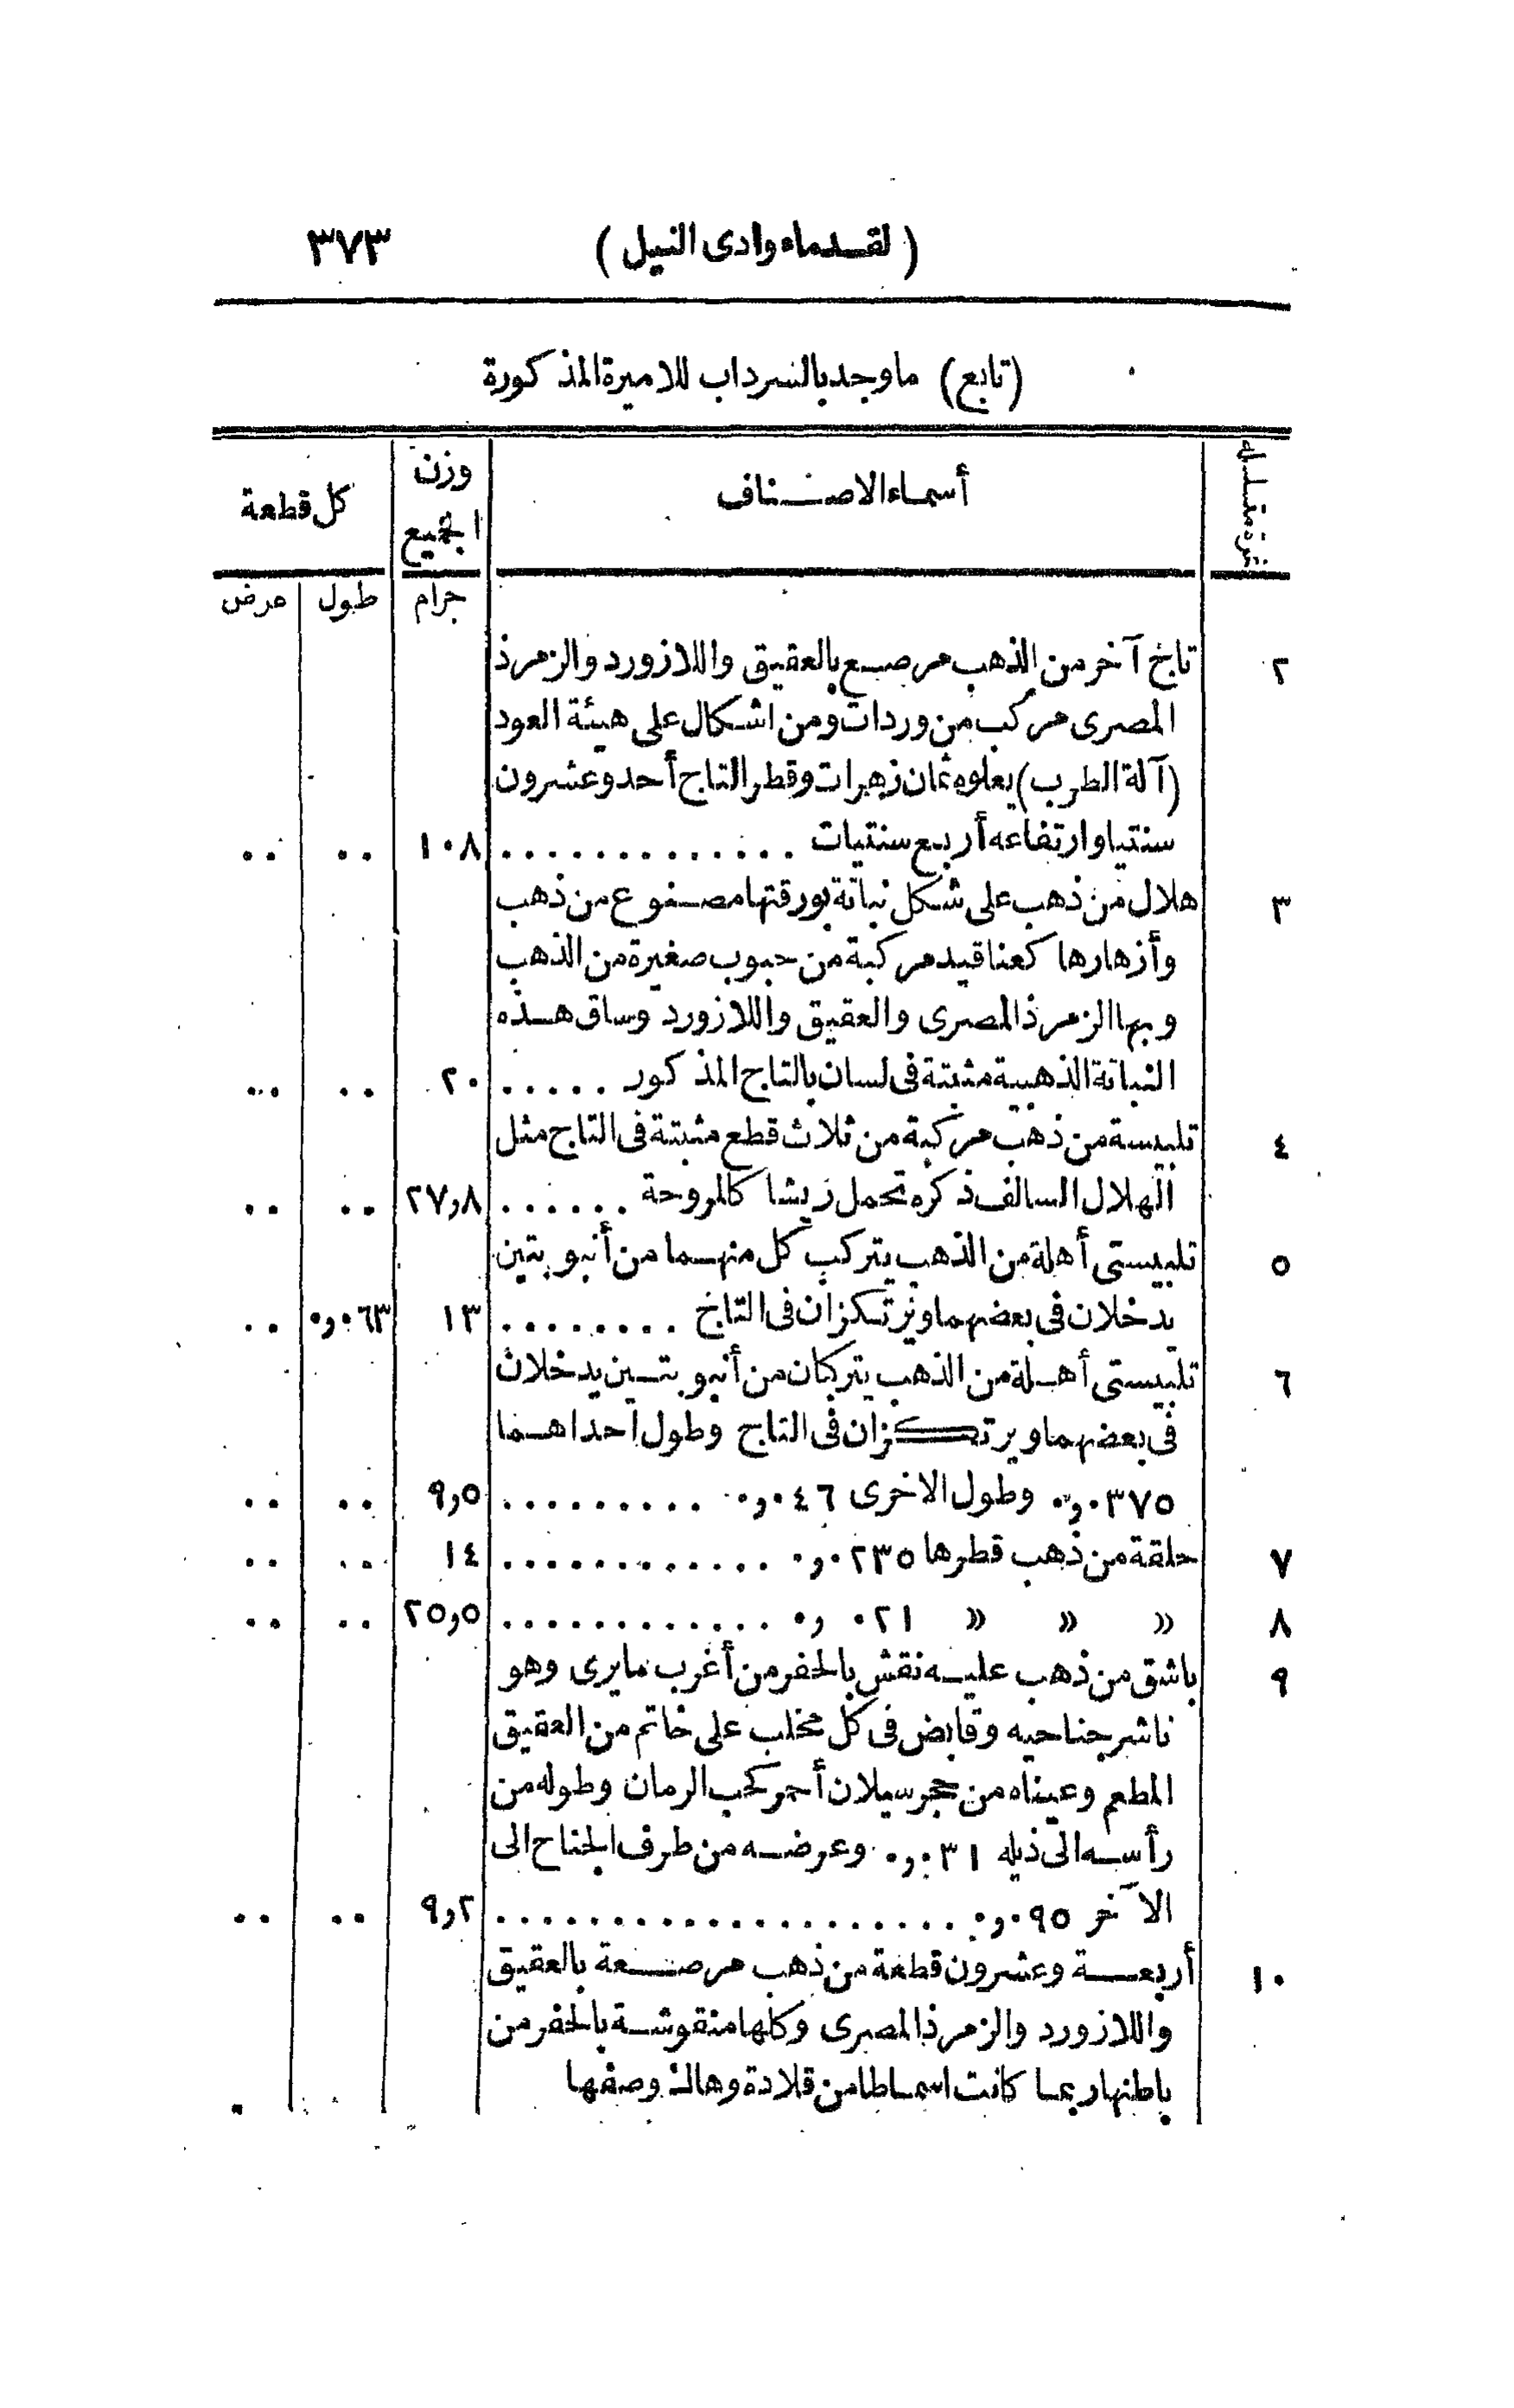 (لقدماء وادى النيل) ٣٧٣
(تابع) ما وجد بالسرداب للاميرة المذكورة
نمرة متسلسلة أسماء الاصناف وزن الجميع كل قطعة
جرام طول عرض
٢ تاج آخر من الذهب مرصع بالعقيق واللازورد والزمرذ
المصرى مركب من وردات ومن اشكال على هيئة العود
(آلة الطرب) يعلوه ثمان زهيرات وقطر التاج أحد وعشرون
سنتيا وارتفاعه أربع سنتيات ............. ١٠٨ .. ..
٣ هلال من ذهب على شكل نباتة بورقتها مصنوع من ذهب
وأزهارها كعناقيد مركبة من حبوب صغيرة من الذهب
وبها الزمرذ المصرى والعقيق واللازورد وساق هذه
النباتة الذهبية مثبتة فى لسان بالتاج المذكور ..... ٢٠ .. ..
٤ تلبيسة من ذهب مركبة من ثلاث قطع مثبتة فى التاج مثل
الهلال السالف ذكره تحمل ريشا كالمروحة ...... ٢٧,٨ .. ..
٥ تلبيستى أهلة من الذهب يتركب كل منهما من أنبوبتين
يدخلان فى بعضهما ويرتكزان فى التاج ........ ١٣ ٠,٠٦٣ ..
٦ تلبيستى أهلة من الذهب يتركبان من أنبوبتين يدخلان
فى بعضهما ويرتكزان فى التاج وطول احداهما
٠,٠٣٧٥ وطول الاخرى ٠,٠٤٦ ......... ٩,٥ .. ..
٧ حلقة من ذهب قطرها ٠,٠٢٣٥ ............ ١٤ .. ..
٨ » » » ٠,٠٢١ ............ ٢٥,٥ .. ..
٩ باشق من ذهب عليه نقش بالحفر من أغرب ما يرى وهو
ناشر جناحيه وقابض فى كل مخلب على خاتم من العقيق
المطعم وعيناه من حجر سيلان أحمر كحب الرمان وطوله من
رأسه الى ذيله ٠,٠٣١ وعرضه من طرف الجناح الى
الآخر ٠,٠٩٥ .................... ٩,٢ .. ..
١٠ أربعة وعشرون قطعة من ذهب مرصعة بالعقيق
واللازورد والزمرذ المصرى وكلها منقوشة بالحفر من
باطنها ربما كانت اسماطا من قلادة وهاك وصفها